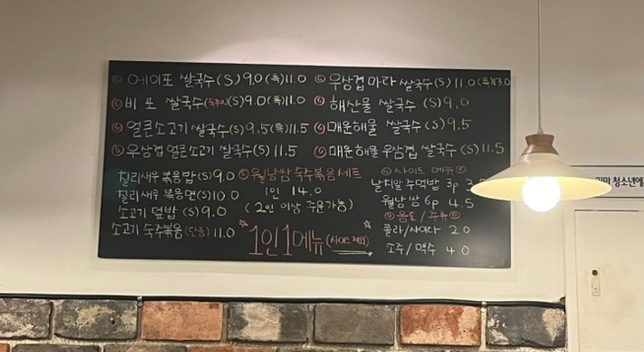 에이포 쌀국수(S) 9.0 (특)11.0
비 포 쌀국수(숙주X)(S)9.0(특)11.0
얼큰소고기 쌀국수(S)9.5(특)11.5
우삼겹 얼큰소고기 쌀국수(S)11.5
우삼겹 마라 쌀국수(S)11.0(특)13.0
해산물 쌀국수 (S)9.0
매운해물 쌀국수 (S)9.5
매운해물 우삼겹 쌀국수 (S)11.5
칠리새우볶음밥(S)9.0
칠리새우 볶음면(S)10.0
소고기 덮밥 (S)9.0
소고기 숙주볶음(단품) 11.0
월남쌈 숙주볶음 세트
1인 14.0
(2인 이상 주문가능)
1인 1메뉴(사이드제외)
사이드 메뉴
날치알 주먹밥 3p
월남쌈 6p 4.5
음료 / 주류
콜라/사이다 2.0
소주/맥주 4.0
청소년에